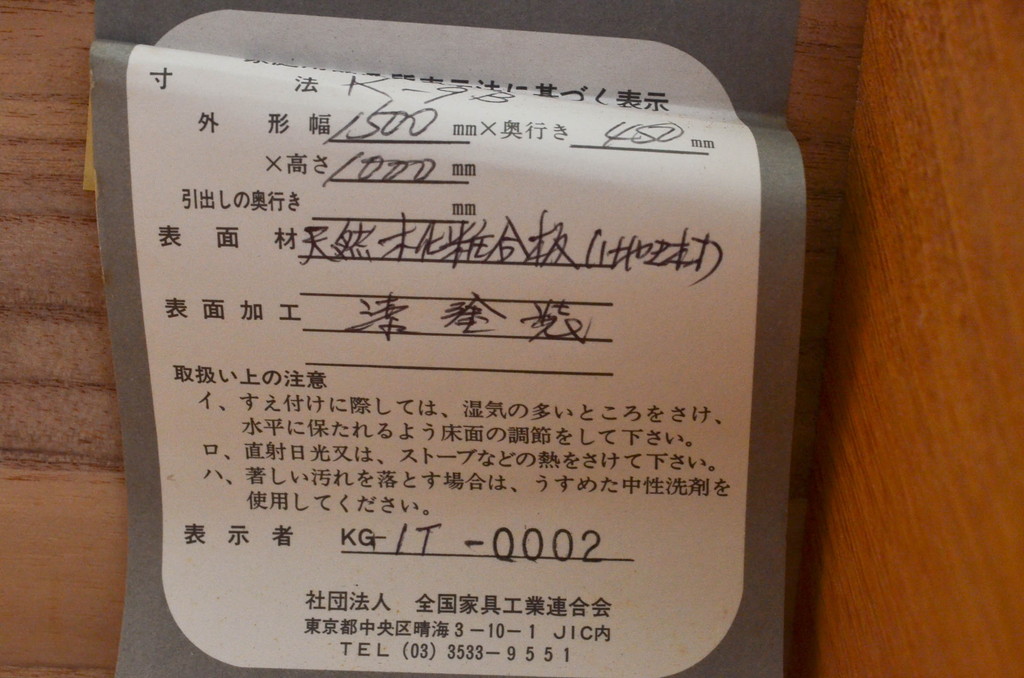 表示法に基づく表示
寸 法 K-98
外 形 幅 1500 mm×奥行き 450 mm
×高さ 1000 mm
引出しの奥行き mm
表 面 材 天然木化粧合板
表面加工 漆塗装
取扱い上の注意
イ、すえ付けに際しては、湿気の多いところをさけ、
水平に保たれるよう床面の調節をして下さい。
ロ、直射日光又は、ストーブなどの熱をさけて下さい。
ハ、著しい汚れを落とす場合は、うすめた中性洗剤を
使用してください。
表 示 者 KG-IT -0002
社団法人 全国家具工業連合会
東京都中央区晴海3-10-1 JIC内
TEL (03) 3533-9551